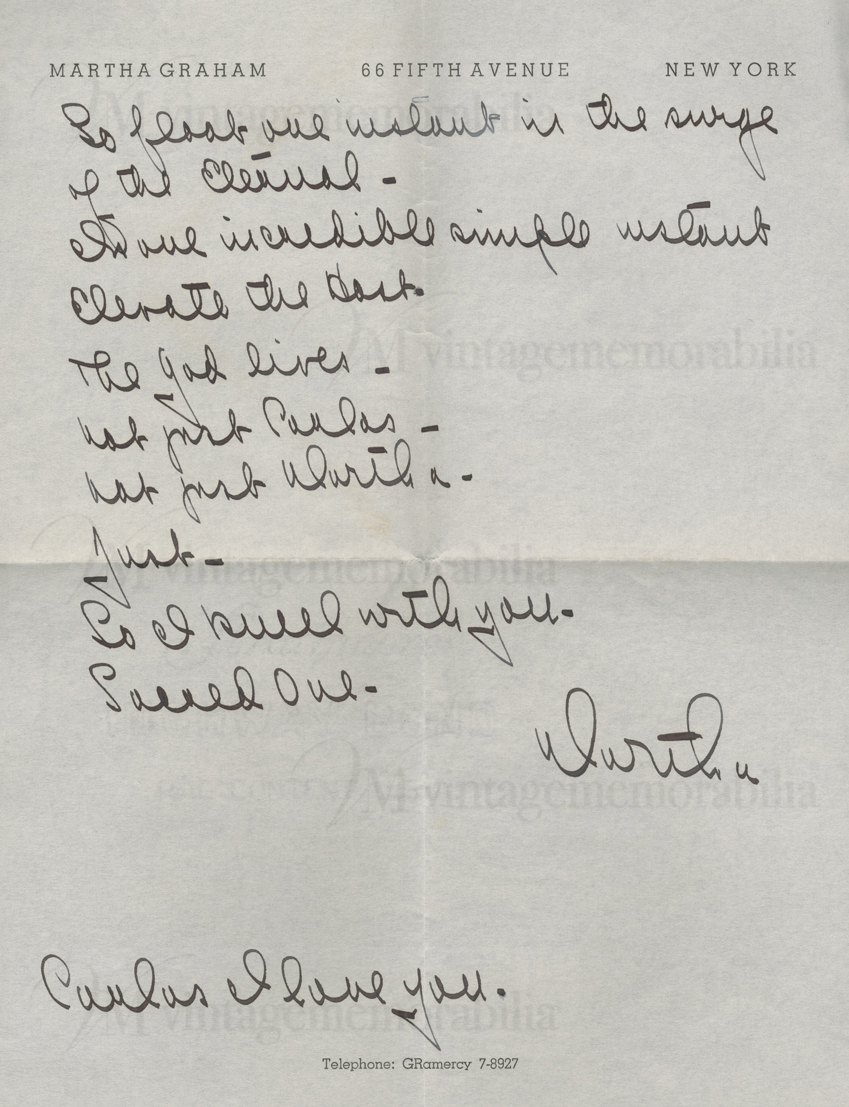 MARTHA GRAHAM 66 FIFTH AVENUE NEW YORK
So float one instant in the surge
of the Eternal -
In one incredible simple instant
Elevate the Host.
The god lives -
not just Carlos -
not just Martha -
Just -
So I kneel with you.
Sacred One -
Martha
Carlos I love you.
Telephone: GRamercy 7-8927
vintagememorabilia
vintagememorabilia
vintagememorabilia
vintagememorabilia
vintagememorabilia